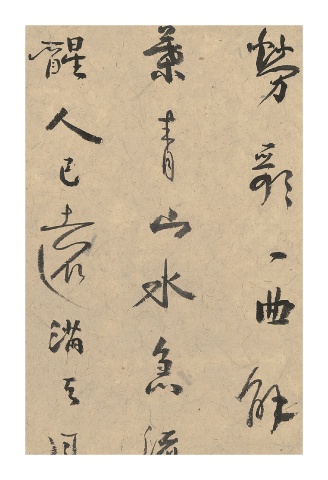 勞歌一曲解
葉青山水急流
醒人已遠滿天風